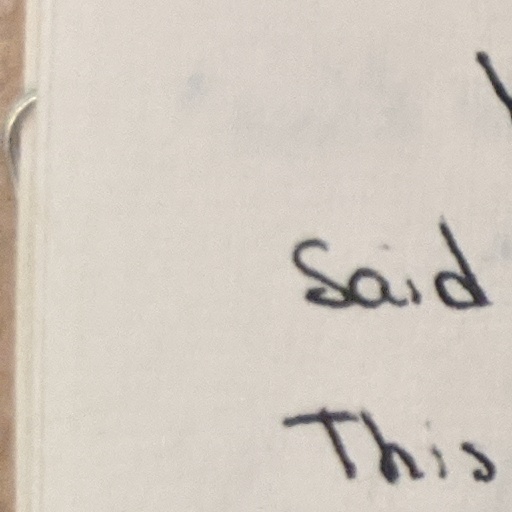 Said
This